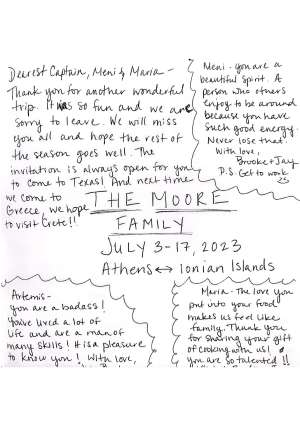 Dearest Captain, Meni & Maria -
Thank you for another wonderful
trip. It was so fun and we are
sorry to leave. We will miss
you all and hope the rest of
the season goes well. The
invitation is always open for you
to come to Texas! And next time
we come to
Greece, we hope
to visit Crete!!
Meni - you are a
beautiful spirit. A
person who others
enjoy to be around
because you have
such good energy.
Never lose that.
With love,
Brooke + Jay
P.S. Get to work
THE MOORE
FAMILY
JULY 3-17, 2023
Athens ↔ Ionian Islands
Artemis -
you are a badass!
You've lived a lot of
life and are a man of
many skills! It is a pleasure
to know you! With love,
Maria - The love you
put into your food
makes us feel like
family. Thank you
for sharing your gift
of cooking with us!
you are so talented!!